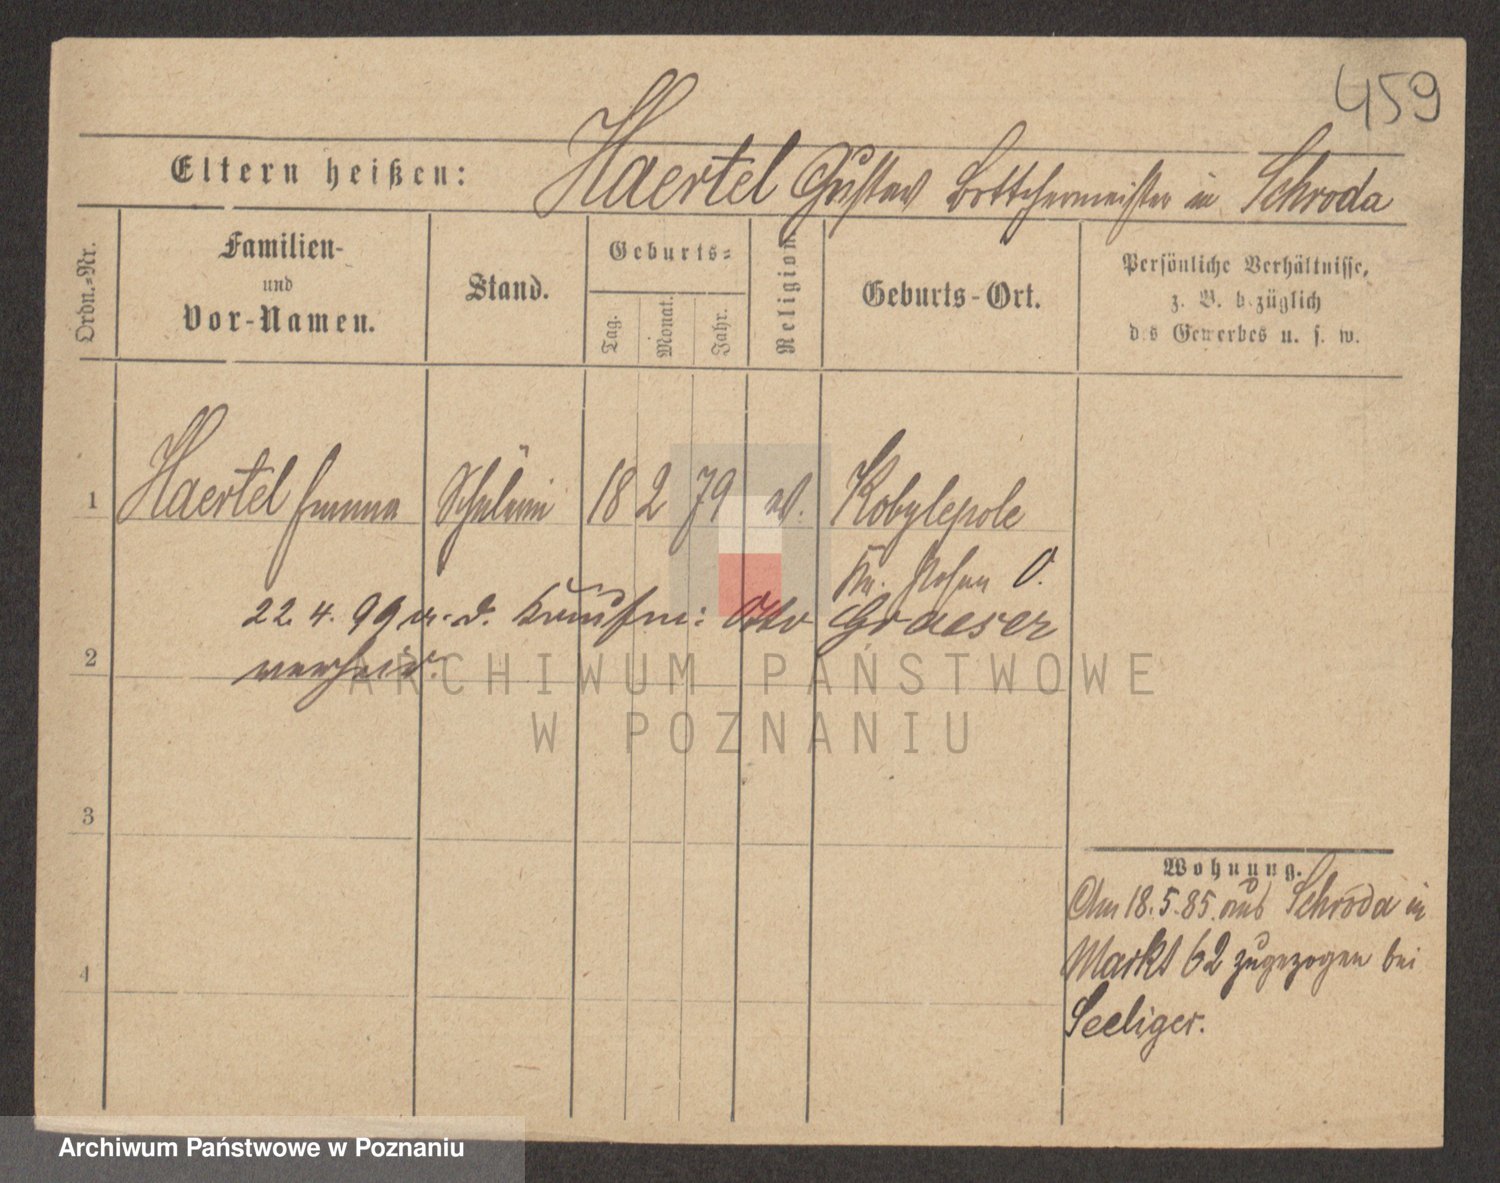 459
Eltern heißen: Haertel Gustav Böttchermeister in Schroda
Ordn.-Nr.
Familien-
und
Vor-Namen.
Stand.
Geburts-
Tag.
Monat.
Jahr.
Religion
Geburts-Ort.
Persönliche Verhältnisse,
z. B. bezüglich
des Gewerbes u. s. w.
1 Haertel Emma Schülerin 18 2 79 ev. Kobylepole
Kr. Posen O.
22. 4. 99 m. d. Kaufm: Otto Graeser
2 verheir.
3
4
Wohnung.
Am 18.5.85. aus Schroda in
Markt 62 zugezogen bei
Seeliger.
ARCHIWUM PAŃSTWOWE
W POZNANIU
Archiwum Państwowe w Poznaniu